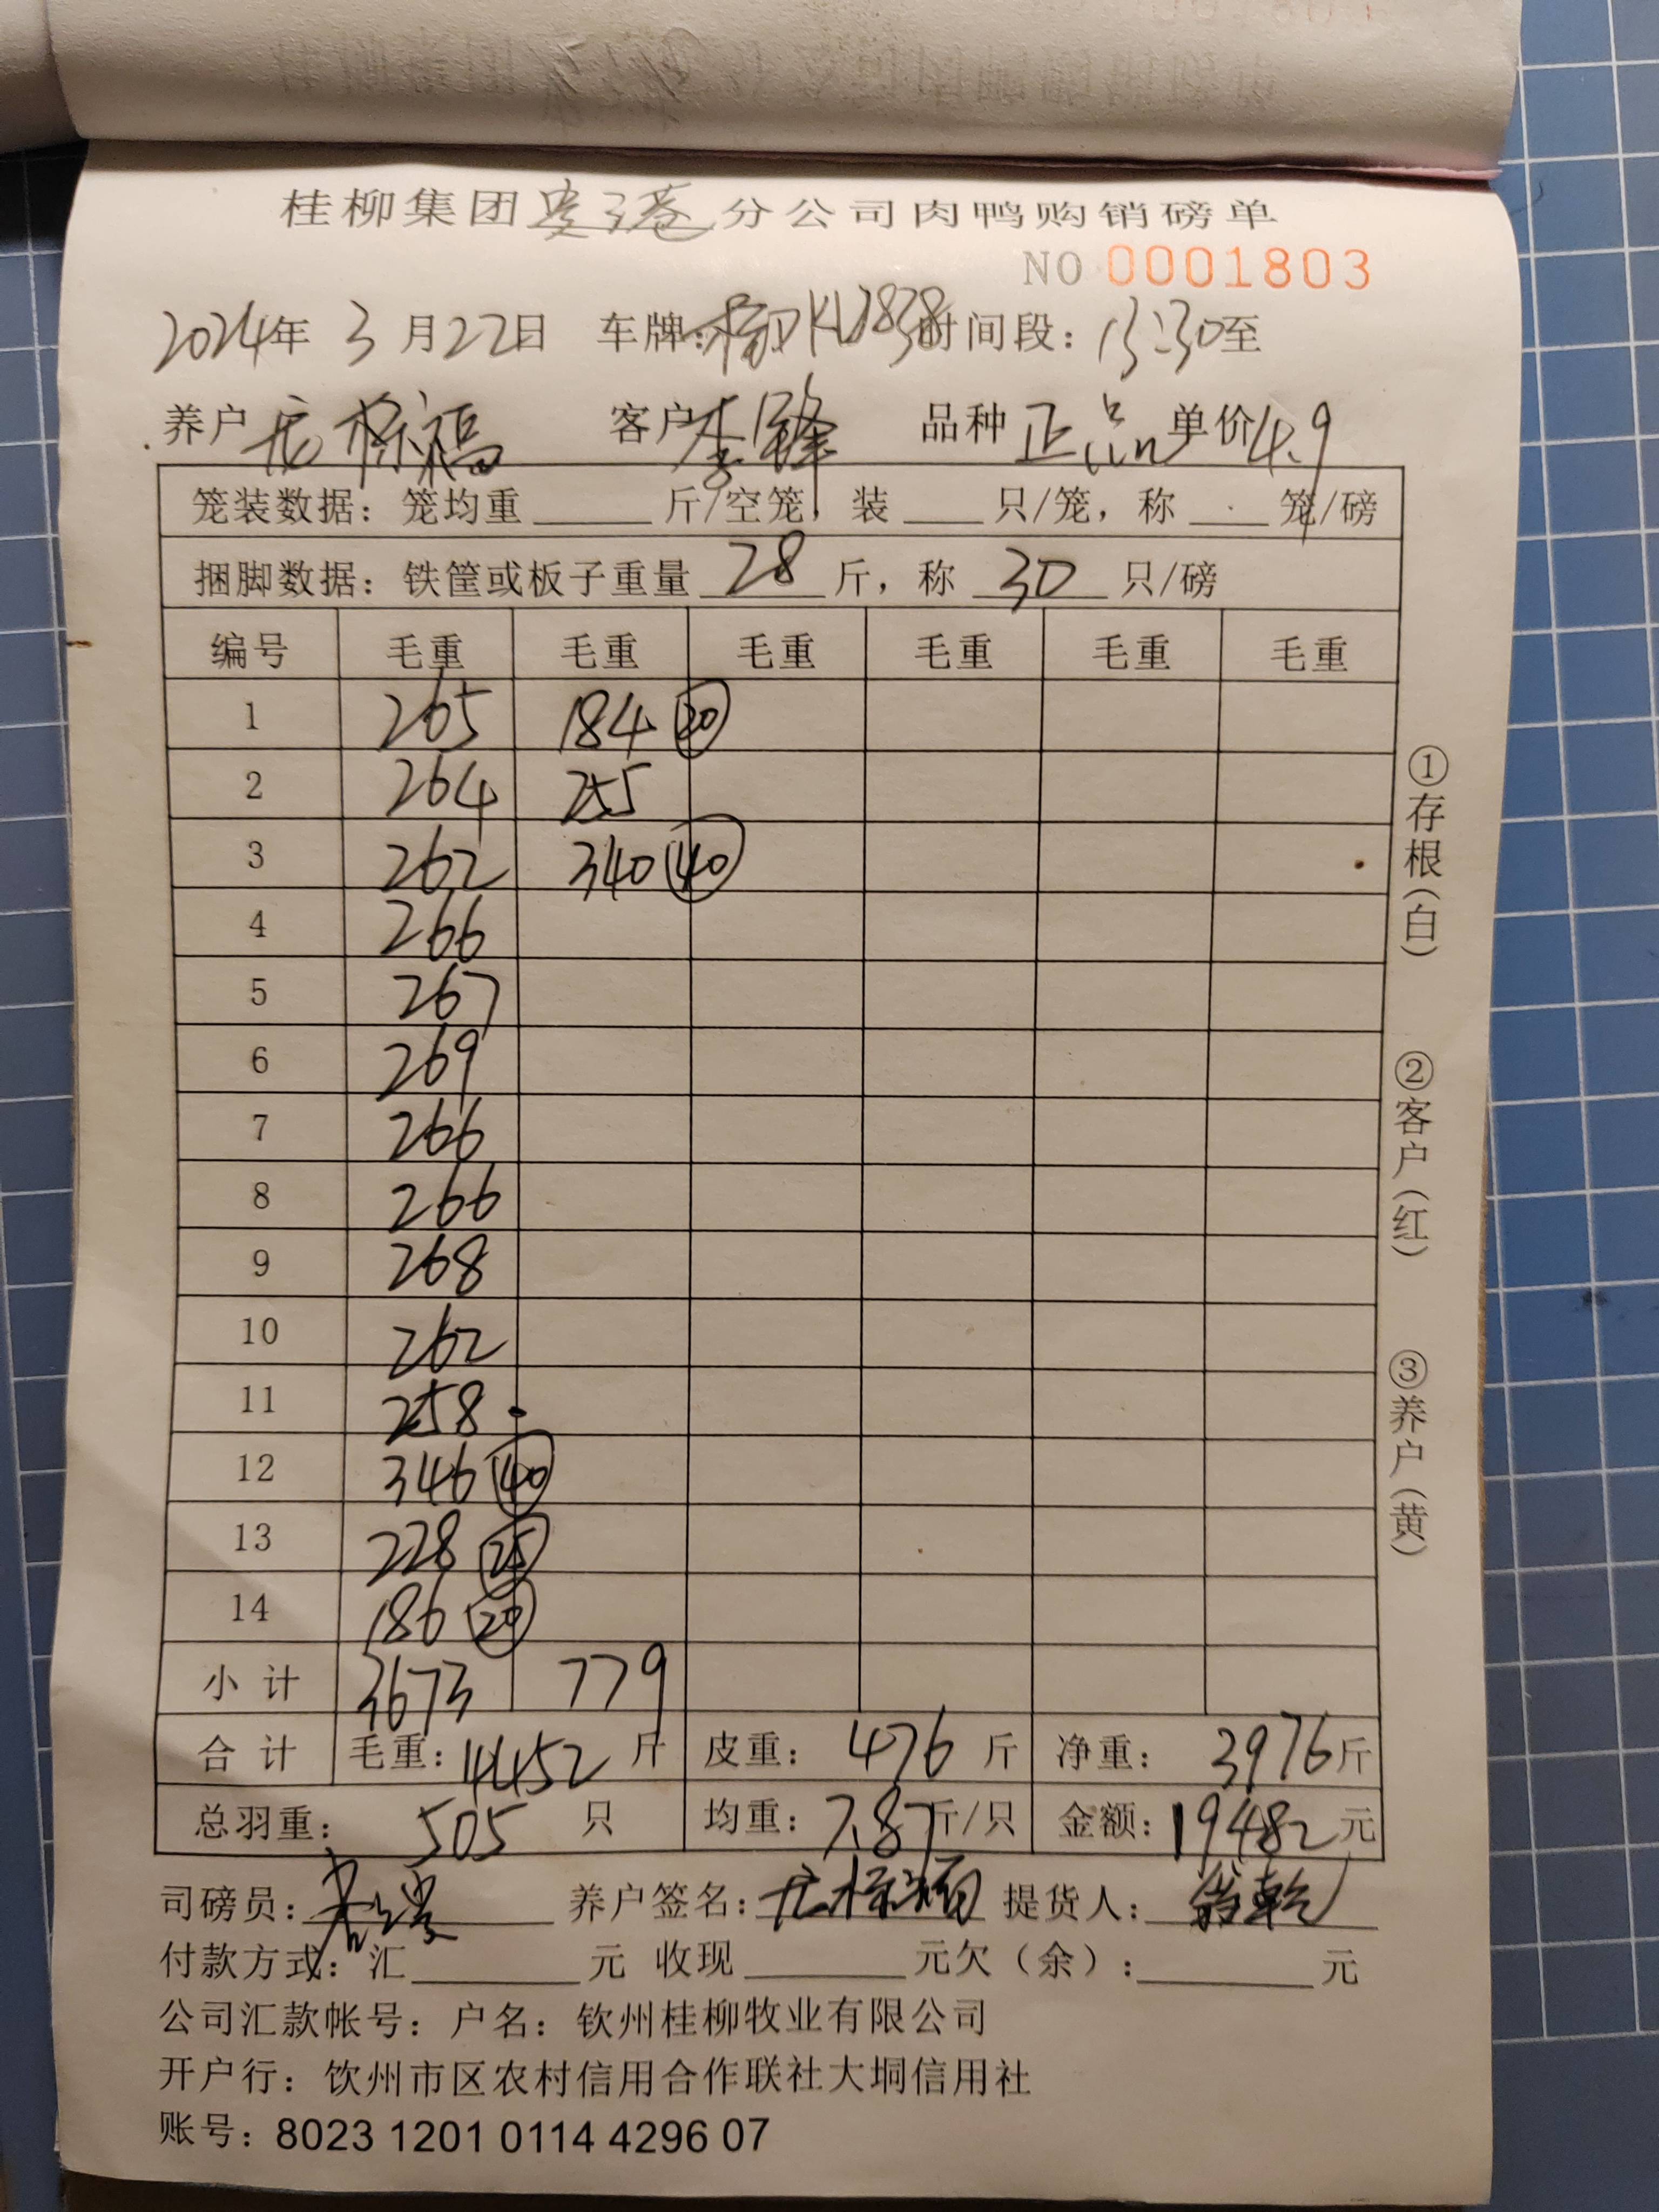 桂柳集团贵港分公司肉鸭购销磅单
NO 0001803
2024年 3月22日 车牌: 时间段: 13:30至
养户 福 客户 李锋 品种 正品 单价 4.9
笼装数据: 笼均重 斤/空笼, 装 只/笼, 称 笼/磅
捆脚数据: 铁筐或板子重量 28 斤, 称 30 只/磅
编号 毛重 毛重 毛重 毛重 毛重 毛重
1 265 184 20
2 264 255
3 262 340 40
4 266
5 267
6 269
7 266
8 266
9 268
10 262
11 258
12 346 40
13 228 25
14 186 20
小计 3673 779
合计 毛重: 4452 斤 皮重: 476 斤 净重: 3976 斤
总羽重: 505 只 均重: 7.87 斤/只 金额: 19482 元
司磅员: 养户签名: 提货人:
付款方式: 汇 元 收现 元欠(余): 元
公司汇款帐号: 户名: 钦州桂柳牧业有限公司
开户行: 钦州市区农村信用合作联社大垌信用社
账号: 8023 1201 0114 4296 07
①存根(白) ②客户(红) ③养户(黄)